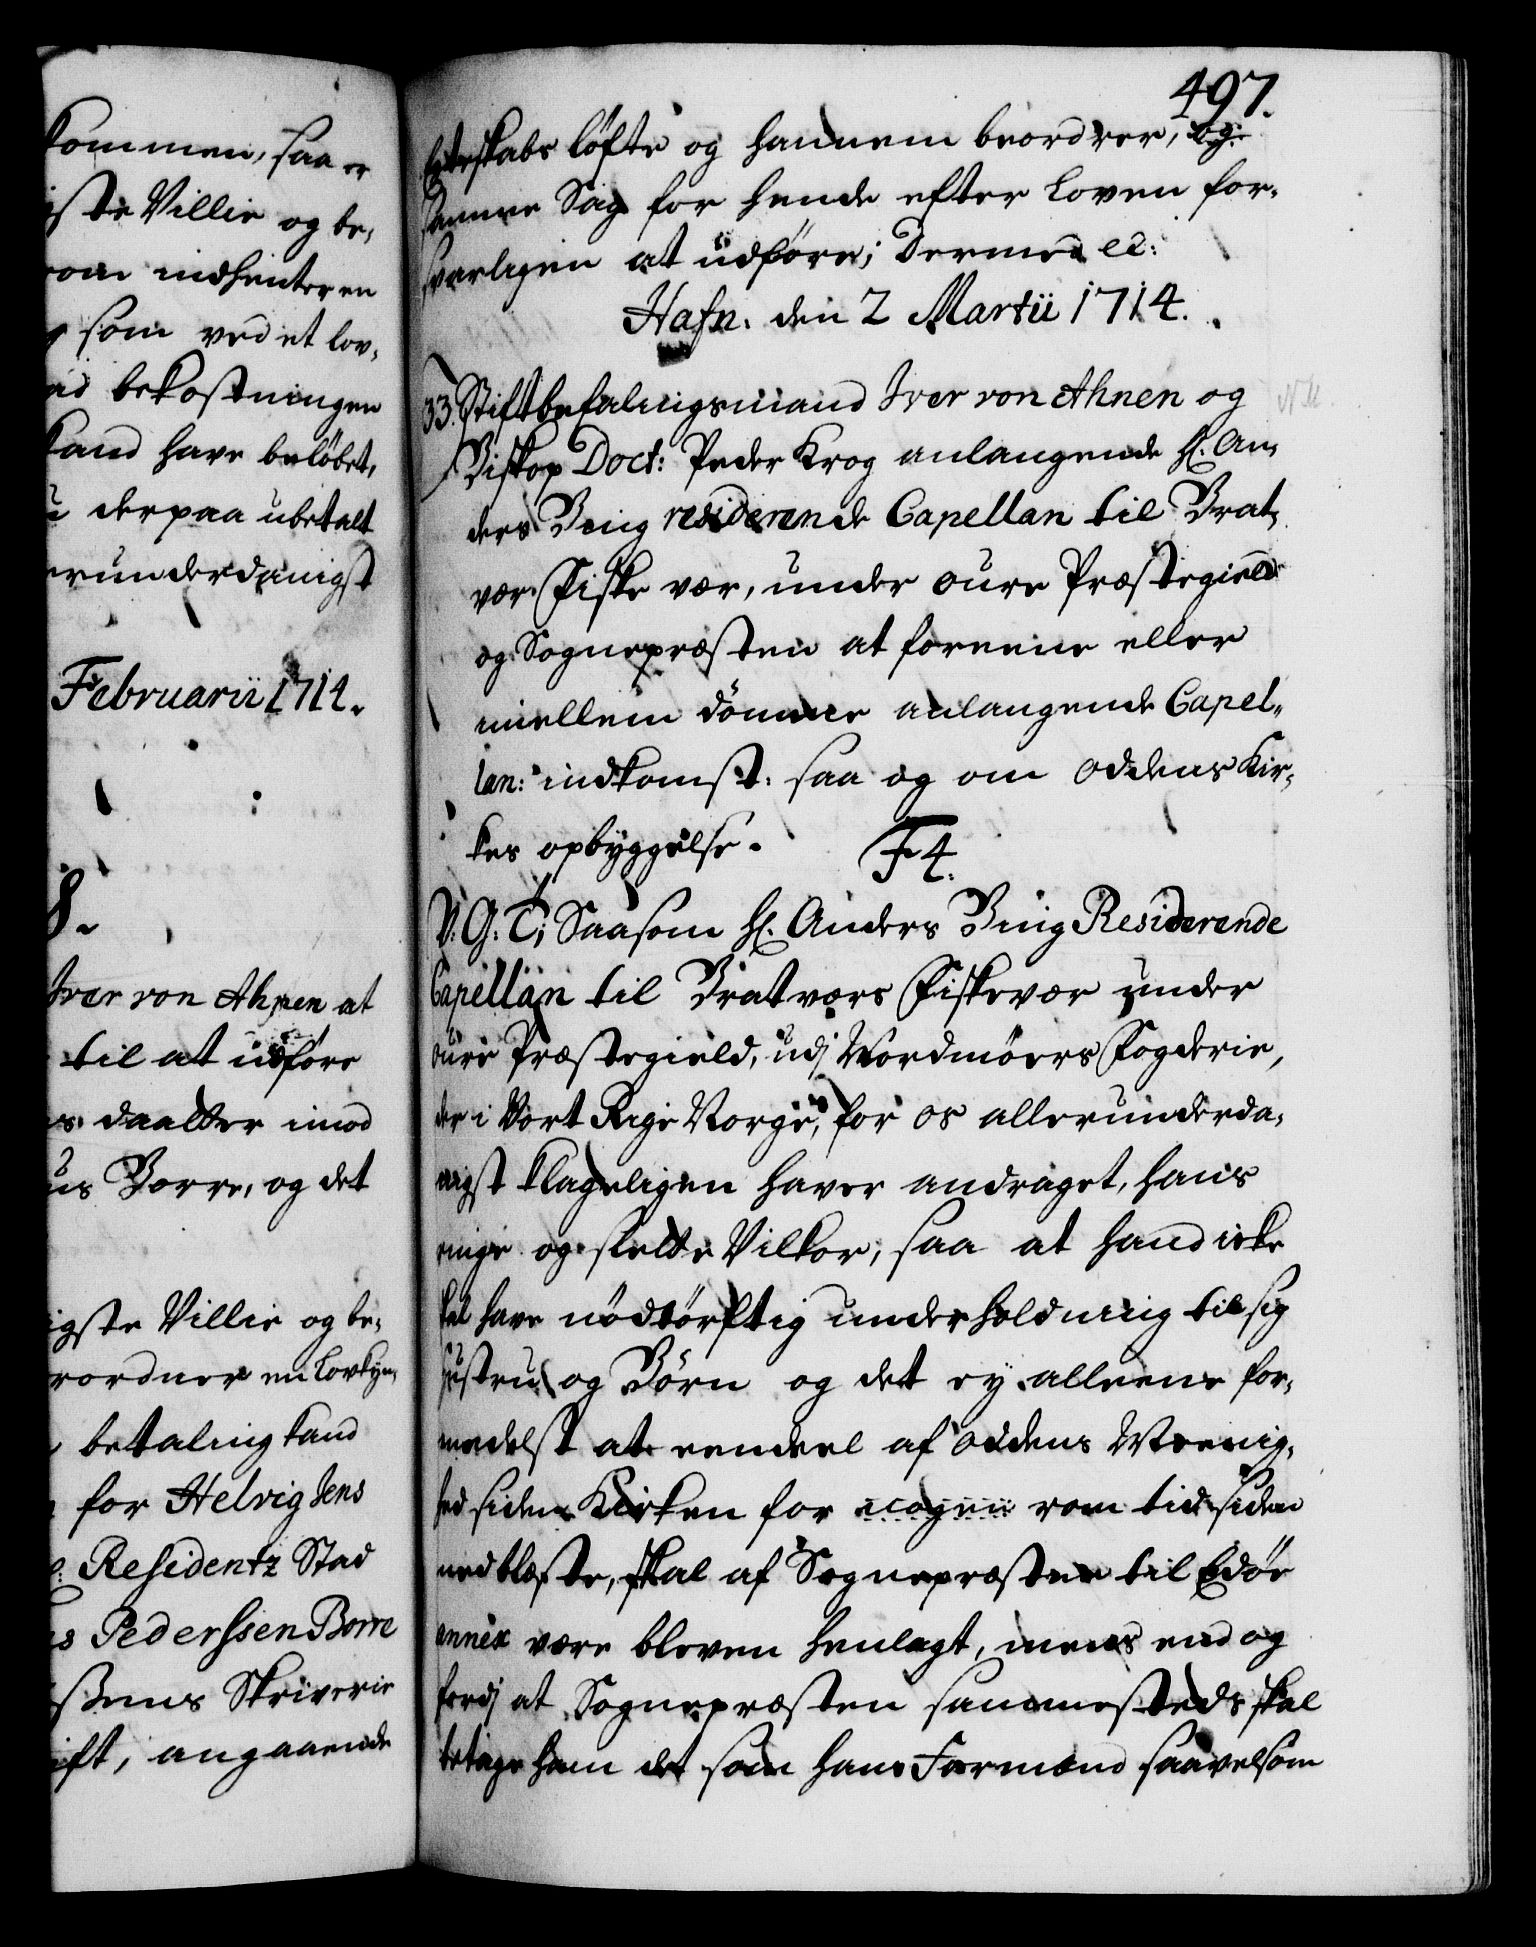 kommen, saa er
ste Villie og be-
indhenter en
som ved et lov-
bekostningen
kand have beløbet,
derpaa ubetalt
underdanigst
Februarii 1714.
8.
Iver von Ahnen at
til at udføre
daaller imod
Borre, og det
igste Villie og be-
rordner en Lovkyn-
betaling kand
for Helvig Jens
Residentz Stad
Pederssen Borre
Skriverie
ift, angaaende
497.
Egteskabs løfte og hannem beordrer,
samme Sag for hende efter Loven for-
svarligen at udføre; Dermed etc:
Hafn. den 2 Martii 1714.
33. Stiftbefalingsmand Iver von Ahnen og
Biskop Doct: Peder Krog anlangende Hr. An-
ders Bing residerende Capellan til Brat-
vær Fiskevær, under Oure Præstegield
og Sognepræsten at foreene eller
imellem dømme anlangende Capel-
lan: indkomst: saa og om Oddens Kir-
kes opbyggelse. F 4.
V. G. T; Saasom Hr. Anders Bing Residerende
Capellan til Bratværs Fiskevær under
Oure Præstegield, udj Nordmøers Fogderie,
der i Vort Rige Norge, for os allerunderda-
nigst klageligen haver andraget, hans
ringe og slette Vilkor, saa at hand icke
skal have nødtørftig underholdning til sig
Hustru og Børn og det ey alleene for-
medelst at eendeel af Oddens Meenig-
hed siden Kirken for nogen rom tid siden
nedblæste, skal af Sognepræsten til Edøe
annex være bleven henlagt, mens end og
fordj at Sognepræsten sammesteds skal
betage ham det som hans Formænd saavelsom